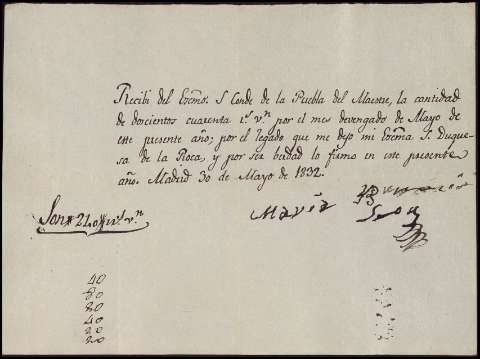 Recibi del Excmo. S. Conde de la Puebla del Maestre, la cantidad
de dorcientos cuarenta r.s v.n por el mes devengado de Mayo de
este presente año; por el legado que me dejo mi Excma S. Duque
sa de la Roca, y por ser berdad lo firmo en este presente
año. Madrid 30 de Mayo de 1832.
Maria
Son# 240# r.s v.n
40
80
20
40
20
20